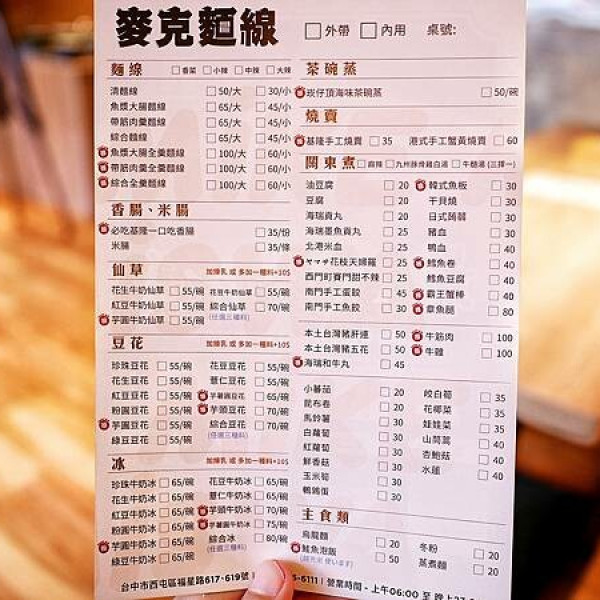 麥克麵線
□外帶 □內用 桌號:
麵線 □香菜 □小辣 □中辣 □大辣
清麵線 □50/大 □30/小
魚漿大腸麵線 □65/大 □45/小
帶筋肉羹麵線 □65/大 □45/小
綜合麵線 □65/大 □45/小
魚漿大腸全羹麵線 □100/大 □60/小
帶筋肉全羹麵線 □100/大 □60/小
綜合全羹麵線 □100/大 □60/小
香腸、米腸
必吃基隆一口吃香腸 □35/份
米腸 □35/條
仙草 加煉乳 或 多加一種料+10$
花生牛奶仙草 □55/碗 花豆牛奶仙草 □55/碗
紅豆牛奶仙草 □55/碗 綜合仙草 □70/碗
芋圓牛奶仙草 □55/碗 (任選三種料)
豆花 加煉乳 或 多加一種料+10$
珍珠豆花 □55/碗 花豆豆花 □55/碗
花生豆花 □55/碗 薏仁豆花 □55/碗
紅豆豆花 □55/碗 芋薯圓豆花 □65/碗
粉圓豆花 □55/碗 芋頭豆花 □70/碗
芋圓豆花 □55/碗 綜合豆花 □70/碗
綠豆豆花 □55/碗 (任選三種料)
冰 加煉乳 或 多加一種料+10$
珍珠牛奶冰 □65/碗 花豆牛奶冰 □65/碗
花生牛奶冰 □65/碗 薏仁牛奶冰 □65/碗
紅豆牛奶冰 □65/碗 芋頭牛奶冰 □70/碗
粉圓牛奶冰 □65/碗 芋薯圓牛奶冰 □75/碗
芋圓牛奶冰 □65/碗 綜合冰 □80/碗
綠豆牛奶冰 □65/碗 (任選三種料)
茶碗蒸
崁仔頂海味茶碗蒸 □50/碗
燒賣
基隆手工燒賣 □35 港式手工蟹黃燒賣 □60
關東煮 □麻辣 □九州豚骨雞白湯 □牛麵湯 (三擇一)
油豆腐 □20 韓式魚板 □30
豆腐 □20 干貝燒 □30
海瑞貢丸 □20 日式蒟蒻 □30
海瑞墨魚貢丸 □25 豬血 □30
北港米血 □20 鴨血 □40
ヤマサ花枝天婦羅 □25 鱈魚卷 □40
西門町賽門甜不辣 □25 鱈魚豆腐 □40
南門手工蛋餃 □45 霸王蟹棒 □40
南門手工魚餃 □30 章魚腿 □80
本土台灣豬肝連 □50 牛筋肉 □100
本土台灣豬五花 □50 牛雜 □100
海瑞和牛丸 □45
小蕃茄 □20 皎白筍 □35
昆布卷 □20 花椰菜 □35
馬鈴薯 □30 娃娃菜 □35
白蘿蔔 □30 山茼蒿 □40
紅蘿蔔 □30 杏鮑菇 □40
鮮香菇 □30 水蓮 □40
玉米筍 □30
鵪鶉蛋 □30
主食類
烏龍麵 □20 冬粉 □20
鮭魚泡飯 □50 蒸煮麵 □20
台中市西屯區福星路617-619號 | 5-6111 | 營業時間 - 上午06:00 至 晚上